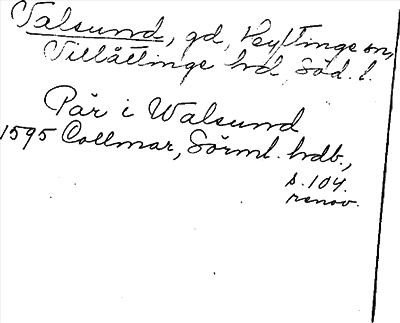 Valsund, gd, Vey/Tinge sn,
Villåttinge hd, Söd. l.
Pär i Walsund
1595 Collmar, Sörml. hdb.,
s. 104.
renov.